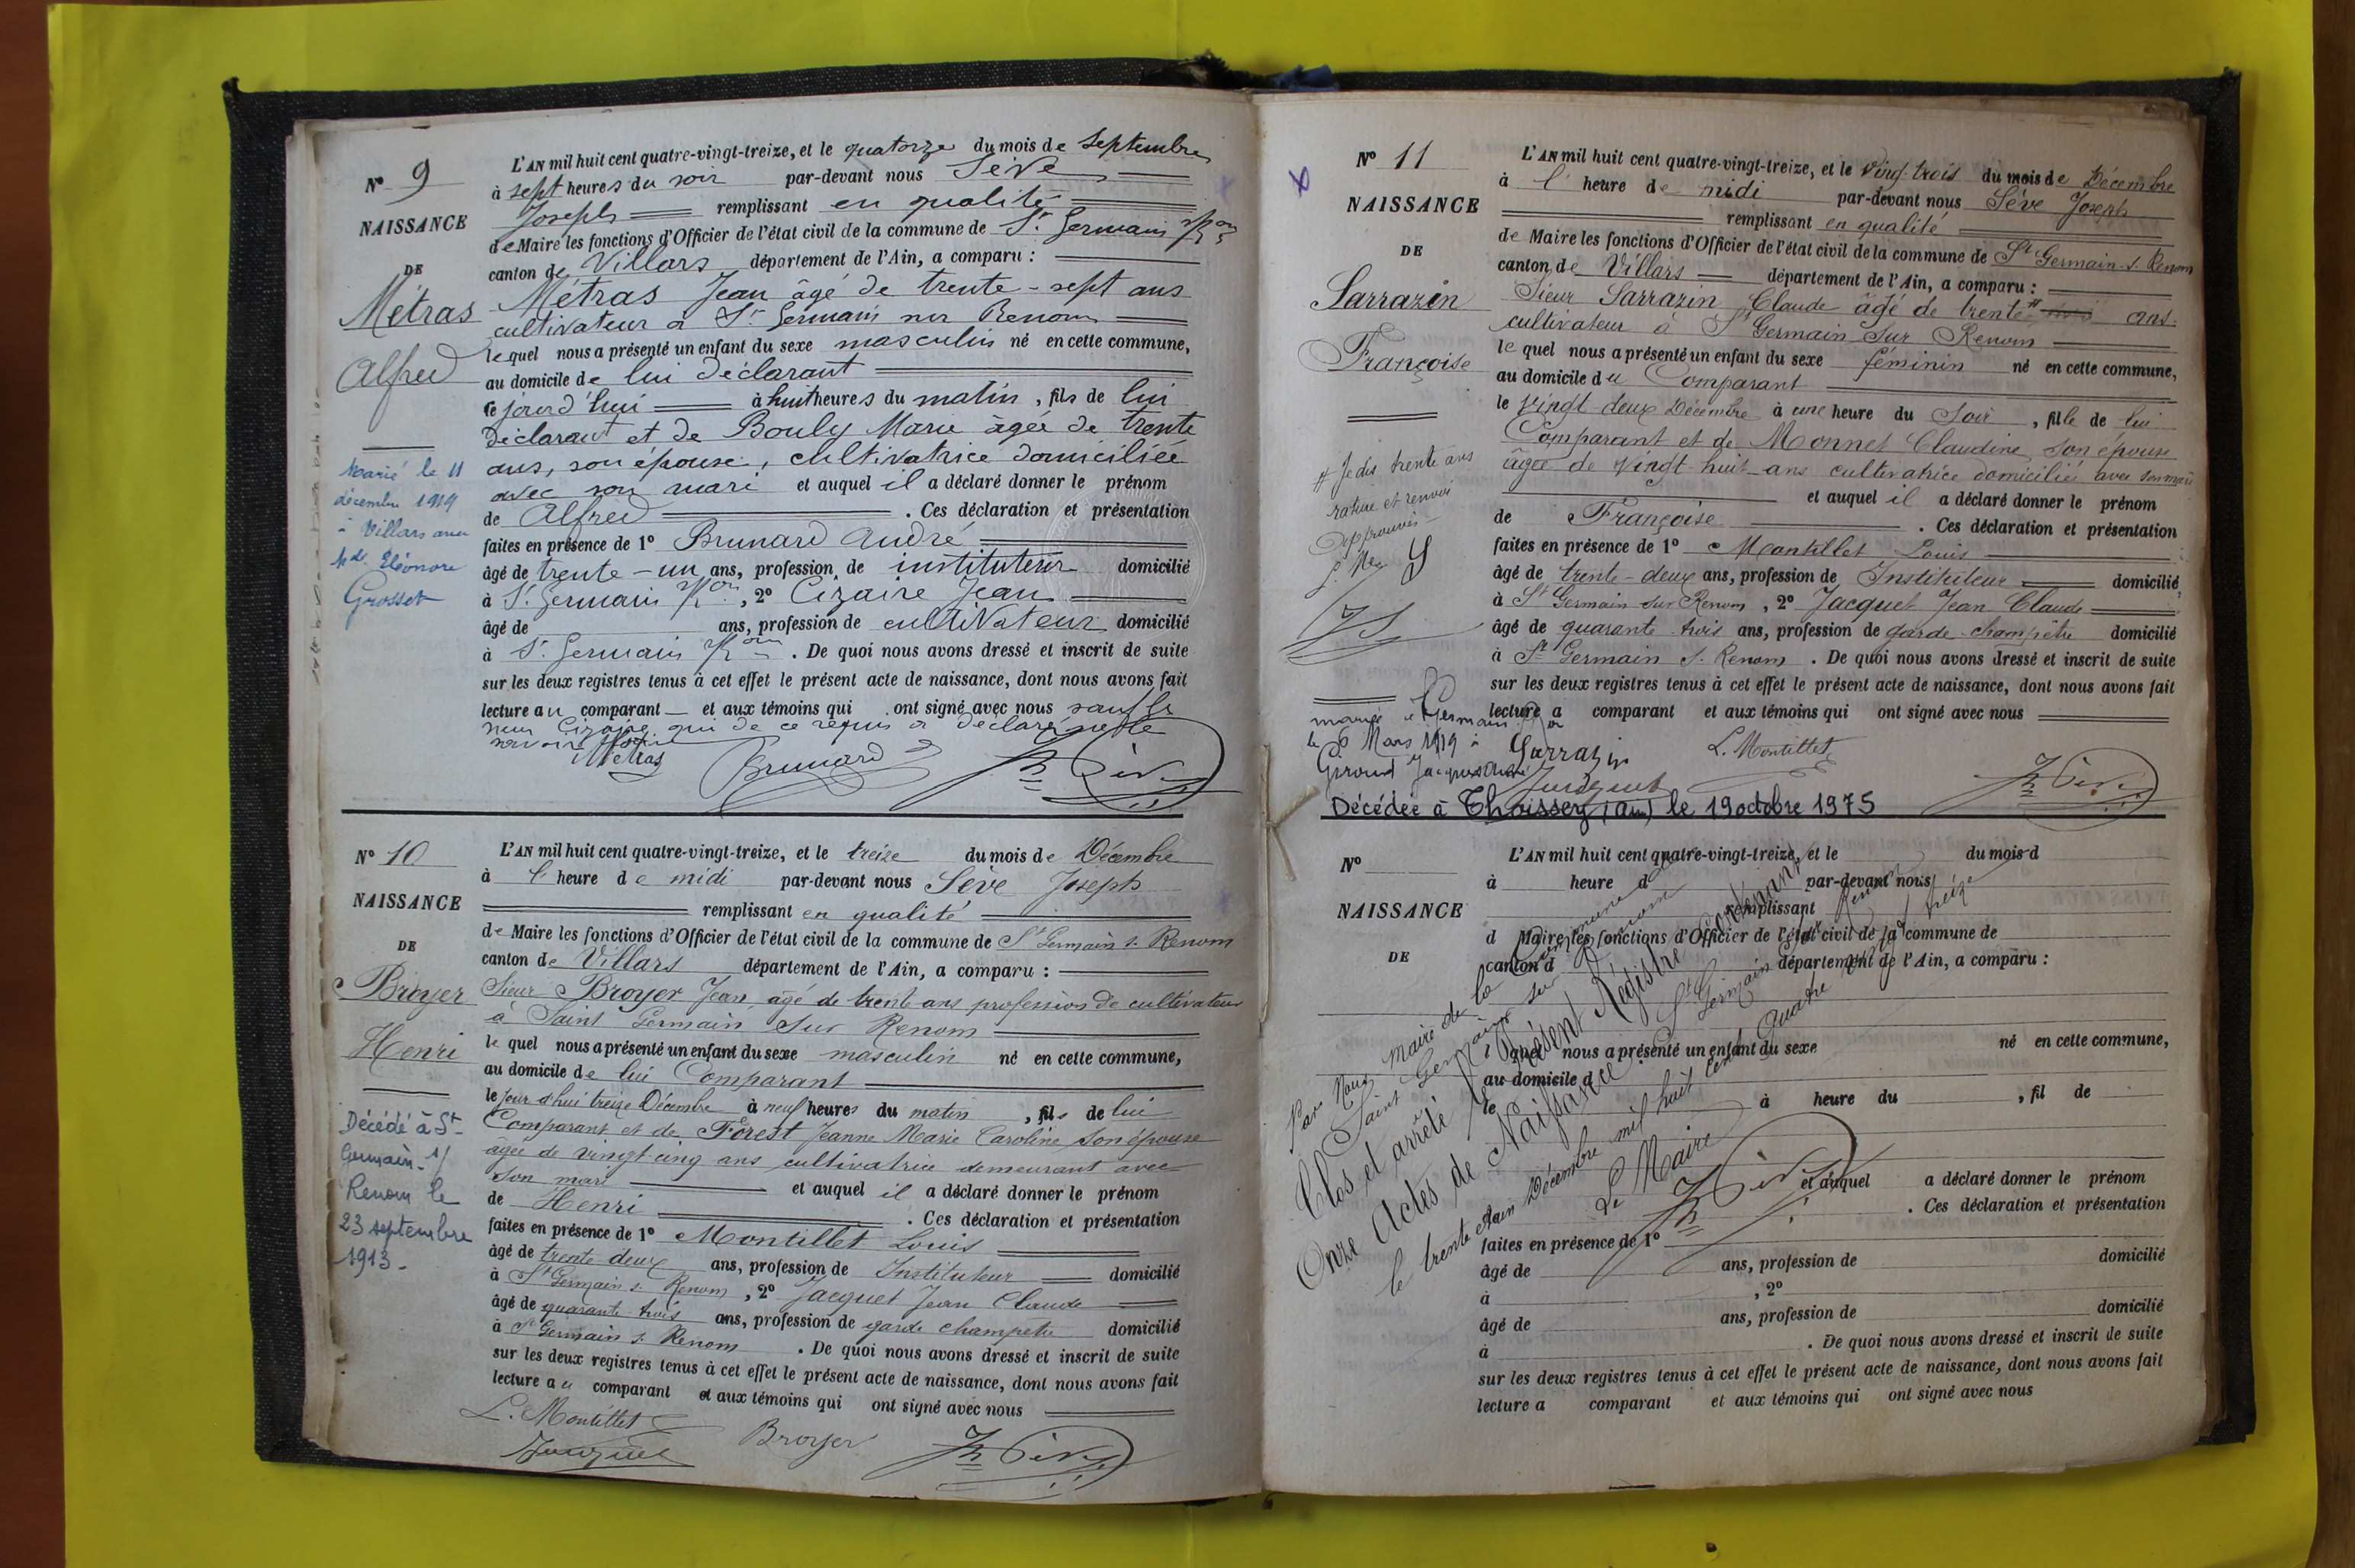 Nº 9
NAISSANCE
DE
Métras
Alfred
Marié le 11
décembre 1919
à Villars avec
Eléonore
Grosset
L'AN mil huit cent quatre-vingt-treize, et le quatorze du mois de septembre
à sept heures du soir par-devant nous Sève
Joseph remplissant en qualité
de Maire les fonctions d'Officier de l'état civil de la commune de St Germain s/Ron
canton de Villars département de l'Ain, a comparu :
Métras Jean âgé de trente-sept ans
cultivateur à St Germain sur Renom
lequel nous a présenté un enfant du sexe masculin né en cette commune,
au domicile de lui déclarant
le jourd'hui à huit heures du matin, fils de lui
déclarant et de Bouly Marie âgée de trente
ans, son épouse, cultivatrice domiciliée
avec son mari et auquel il a déclaré donner le prénom
de Alfred . Ces déclaration et présentation
faites en présence de 1º Brunard André
âgé de trente-un ans, profession de instituteur domicilié
à St Germain s/Ron, 2º Cizaire Jean
âgé de ans, profession de cultivateur domicilié
à St Germain s/Ron . De quoi nous avons dressé et inscrit de suite
sur les deux registres tenus à cet effet le présent acte de naissance, dont nous avons fait
lecture au comparant et aux témoins qui ont signé avec nous sauf le
sieur Cizaire qui de ce requis a déclaré ne le
savoir
Métras Brunard Jh Sève
Nº 10
NAISSANCE
DE
Broyer
Henri
Décédé à St
Germain s/
Renom le
23 septembre
1913.
L'AN mil huit cent quatre-vingt-treize, et le treize du mois de Décembre
à l' heure de midi par-devant nous Sève Joseph
remplissant en qualité
de Maire les fonctions d'Officier de l'état civil de la commune de St Germain s. Renom
canton de Villars département de l'Ain, a comparu :
Sieur Broyer Jean âgé de trente ans profession de cultivateur
à Saint Germain Sur Renom
lequel nous a présenté un enfant du sexe masculin né en cette commune,
au domicile de lui Comparant
le jour d'hui treize Décembre à neuf heures du matin, fils de lui
Comparant et de Forest Jeanne Marie Caroline son épouse
âgée de vingt cinq ans cultivatrice demeurant avec
son mari et auquel il a déclaré donner le prénom
de Henri . Ces déclaration et présentation
faites en présence de 1º Montillet Louis
âgé de trente deux ans, profession de Instituteur domicilié
à St Germain s. Renom, 2º Jacquet Jean Claude
âgé de quarante trois ans, profession de garde champetre domicilié
à St Germain s. Renom . De quoi nous avons dressé et inscrit de suite
sur les deux registres tenus à cet effet le présent acte de naissance, dont nous avons fait
lecture au comparant et aux témoins qui ont signé avec nous
L. Montillet
Jacquet Broyer Jh Sève
Nº 11
NAISSANCE
DE
Sarrazin
Françoise
# Je dis trente ans
rature et renvoi
approuvés
L. M J
JS
mariée à St Germain s/Ron
le 6 Mars 1919 à
Giroud Jacques
L'AN mil huit cent quatre-vingt-treize, et le Vingt-trois du mois de Décembre
à l' heure de midi par-devant nous Sève Joseph
remplissant en qualité
de Maire les fonctions d'Officier de l'état civil de la commune de St Germain s. Renom
canton de Villars département de l'Ain, a comparu :
Sieur Sarrazin Claude âgé de trente # trois ans
cultivateur à St Germain Sur Renom
lequel nous a présenté un enfant du sexe féminin né en cette commune,
au domicile du Comparant
le vingt deux Décembre à une heure du Soir, fille de lui
Comparant et de Monnet Claudine son épouse
âgée de vingt-huit ans cultivatrice domicilié avec son mari
et auquel il a déclaré donner le prénom
de Françoise . Ces déclaration et présentation
faites en présence de 1º Montillet Louis
âgé de trente-deux ans, profession de Instituteur domicilié
à St Germain sur Renom, 2º Jacquet Jean Claude
âgé de quarante trois ans, profession de garde-champêtre domicilié
à St Germain s. Renom . De quoi nous avons dressé et inscrit de suite
sur les deux registres tenus à cet effet le présent acte de naissance, dont nous avons fait
lecture a comparant et aux témoins qui ont signé avec nous
Sarrazin L. Montillet
Jacquet Jh Sève
Décédée à Thoissey (Ain) le 19 octobre 1975
Nº
NAISSANCE
DE
L'AN mil huit cent quatre-vingt-treize, et le du mois d
à heure d par-devant nous
remplissant
d Maire les fonctions d'Officier de l'état civil de la commune de
canton d département de l'Ain, a comparu :
l quel nous a présenté un enfant du sexe né en cette commune,
au domicile d
le à heure du , fil de
et auquel a déclaré donner le prénom
. Ces déclaration et présentation
faites en présence de 1º
âgé de ans, profession de domicilié
à , 2º
âgé de ans, profession de domicilié
à . De quoi nous avons dressé et inscrit de suite
sur les deux registres tenus à cet effet le présent acte de naissance, dont nous avons fait
lecture a comparant et aux témoins qui ont signé avec nous
Par Nous Maire de la Commune de
Saint Germain sur Renom
Clos et arrêté le Présent Régistre contenant
Onze Actes de Naissance. St Germain sur Renom
le trente et un Décembre mil huit cent quatre vingt treize
Le Maire
Jh Sève